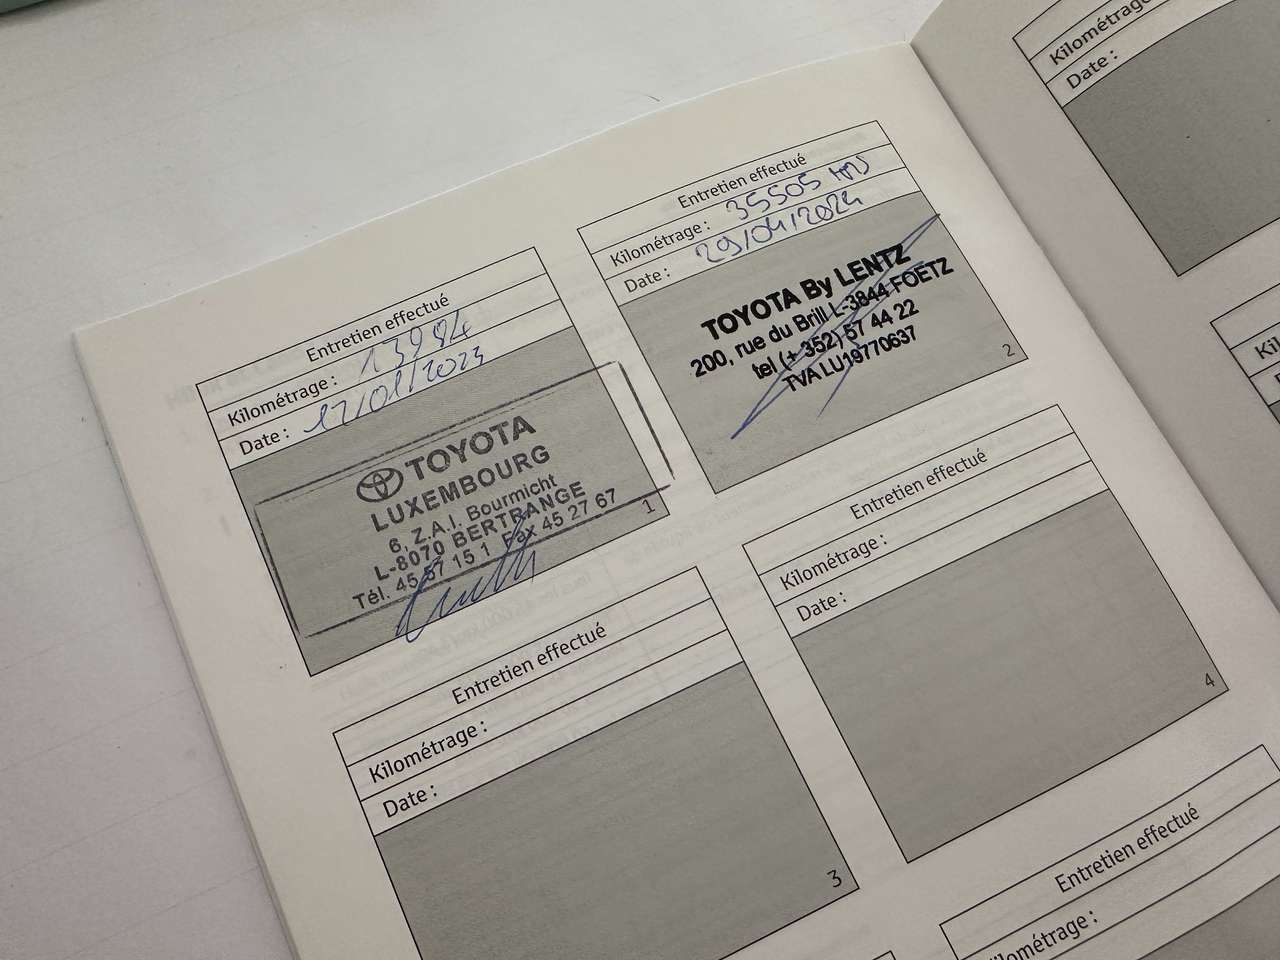 Entretien effectué
Kilométrage : 13994
Date : 17/01/2023
TOYOTA
LUXEMBOURG
6, Z.A.I. Bourmicht
L-8070 BERTRANGE
Tél. 45 57 15 1 Fax 45 27 67
1
Entretien effectué
Kilométrage : 35505
Date : 29/04/2024
TOYOTA By LENTZ
200, rue du Brill L-3844 FOETZ
tel (+ 352) 57 44 22
TVA LU19770637
2
Entretien effectué
Kilométrage :
Date :
3
Entretien effectué
Kilométrage :
Date :
4
Entretien effectué
Kilométrage :
Kilométrage
Date :